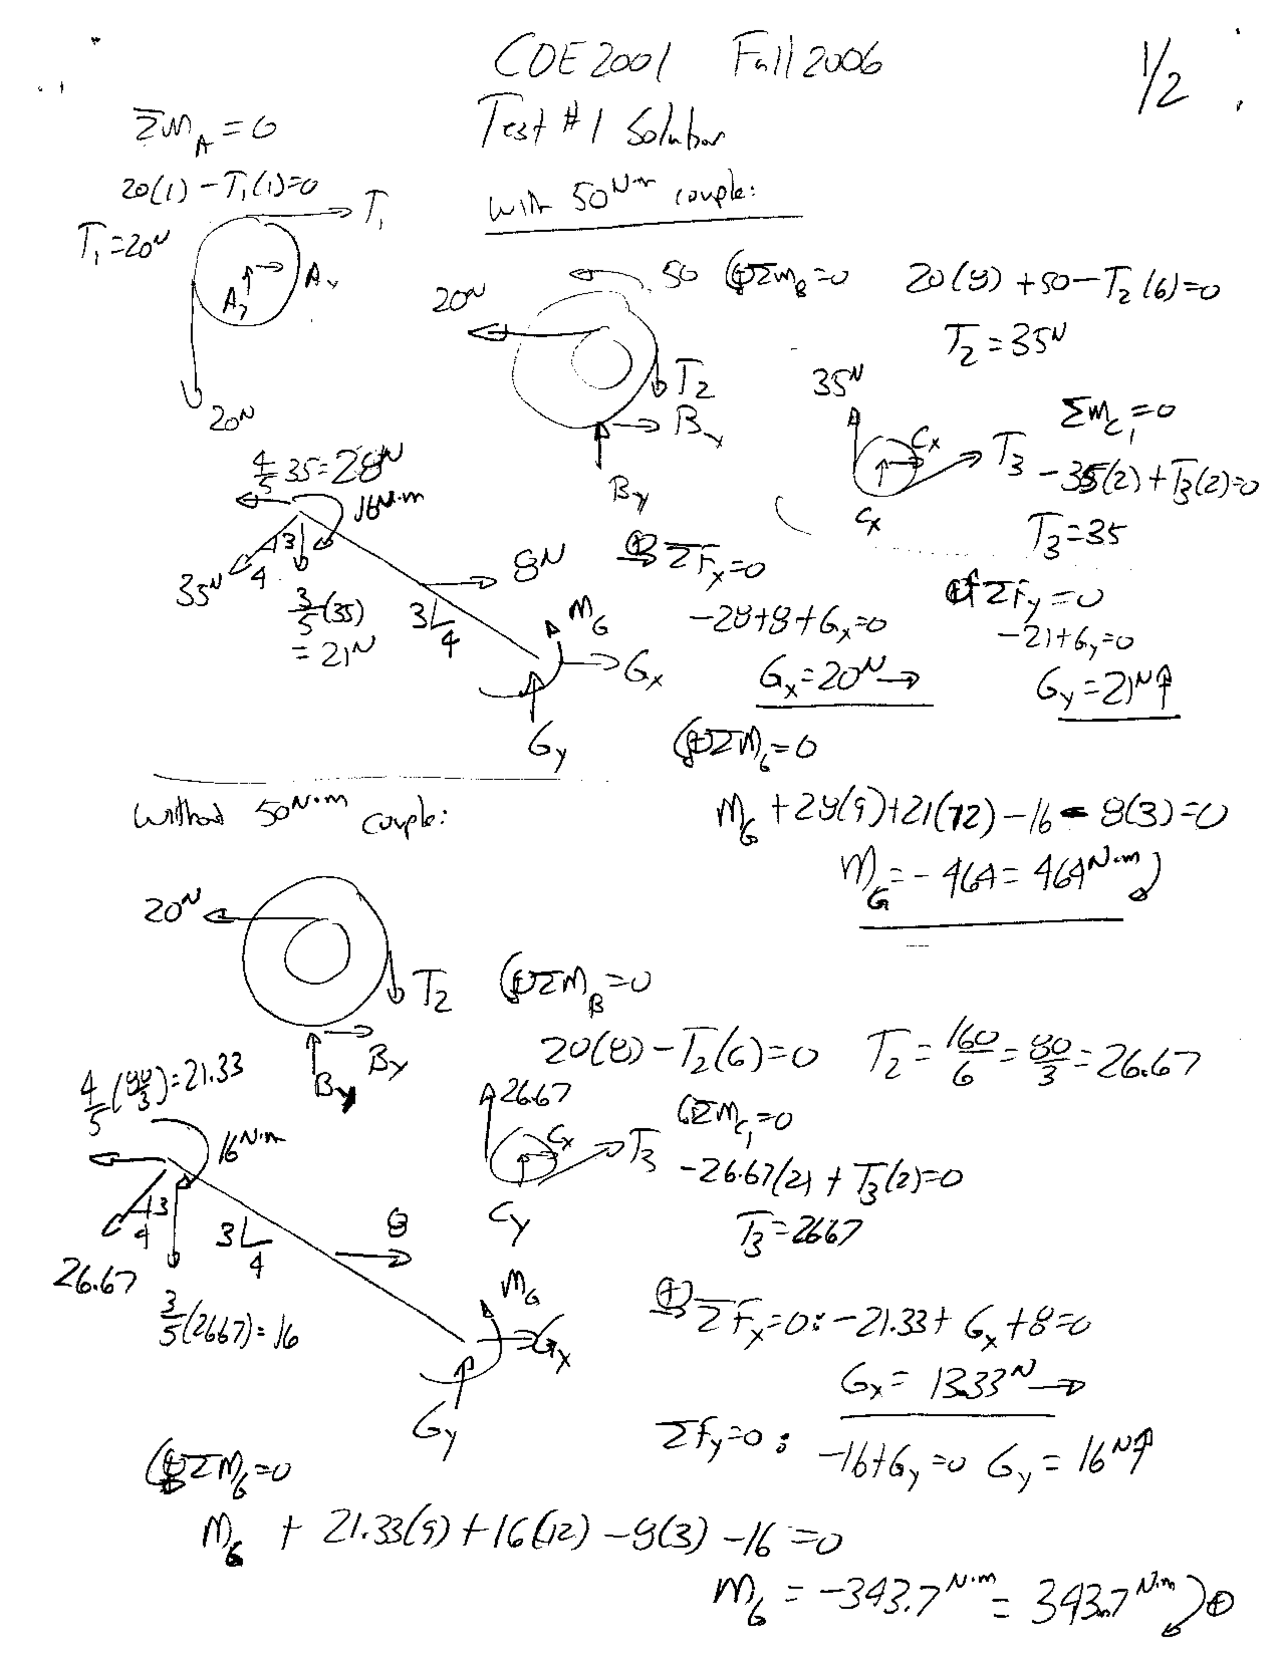 COE2001 Fall 2006
1/2
Test #1 Solution
ΣM_A = 0
20(1) - T₁(1)=0
T₁=20ᴺ
T₁
With 50ᴺ·ᵐ couple:
A_y
20ᴺ
20ᴺ
50
ΣM_B=0
20(8) +50-T₂(6)=0
T₂=35ᴺ
T₂
B_x
B_y
35ᴺ
C_x
T₃
ΣM_C₁=0
-35(2)+T₃(2)=0
T₃=35
4/5 35=28ᴺ
16ᴺ·ᵐ
35ᴺ
3
4
3/5(35)
= 21ᴺ
8ᴺ
3
4
M_G
G_x
G_y
+→ΣF_x=0
-28+8+G_x=0
G_x=20ᴺ→
+↑ΣF_y=0
-21+G_y=0
G_y=21ᴺ↑
ΣM_G=0
M_G +28(9)+21(12)-16-8(3)=0
M_G=-464=464ᴺ·ᵐ
Without 50ᴺ·ᵐ couple:
20ᴺ
T₂
B_y
B_y
ΣM_B=0
20(8)-T₂(6)=0 T₂=160/6=80/3=26.67
4/5(80/3)=21.33
16ᴺ·ᵐ
26.67
C_x
C_y
T₃
ΣM_C₁=0
-26.67(2)+T₃(2)=0
T₃=2667
3
4
26.67
3/5(2667)=16
3
4
8
M_G
G_x
G_y
+→ΣF_x=0:-21.33+G_x+8=0
G_x=13.33ᴺ→
ΣF_y=0: -16+G_y=0 G_y=16ᴺ↑
ΣM_G=0
M_G + 21.33(9)+16(12)-8(3)-16=0
M_G=-343.7ᴺ·ᵐ=343.7ᴺ·ᵐ